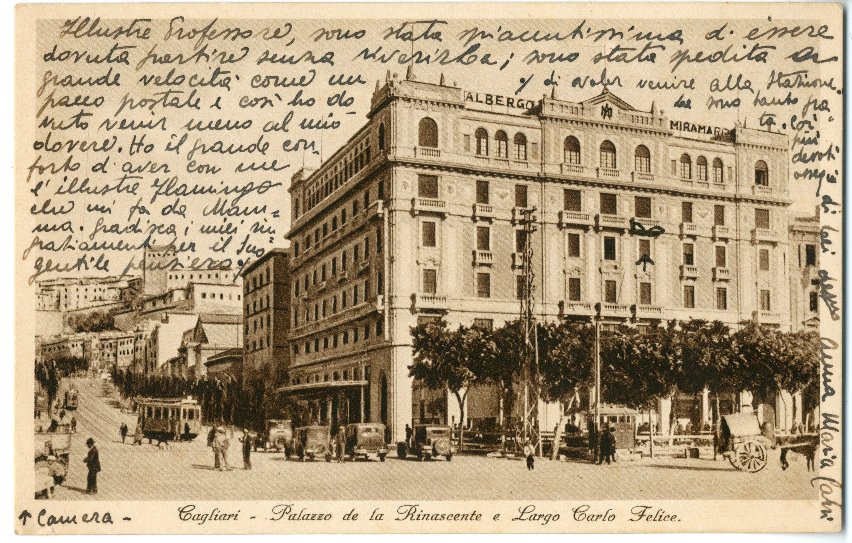 Illustre Professore, sono stata spiacentissima di essere
dovuta partire senza riverirLa; sono stata spedita a
grande velocità come un
pacco postale e così ho do
vuto venir meno al mio
dovere. Ho il grande con
forto d'aver con me
l'illustre Flamingo
che mi fa da Mam=
ma. Gradisca i miei rin
graziamenti per il suo
gentile pensiero
di voler venire alla Stazione.
Le sono tanto gra
ta. Coi
più
devoti
ossequi di Lei
Anna Maria
ALBERGO
MIRAMARE
↑ Camera -
Cagliari - Palazzo de la Rinascente e Largo Carlo Felice.